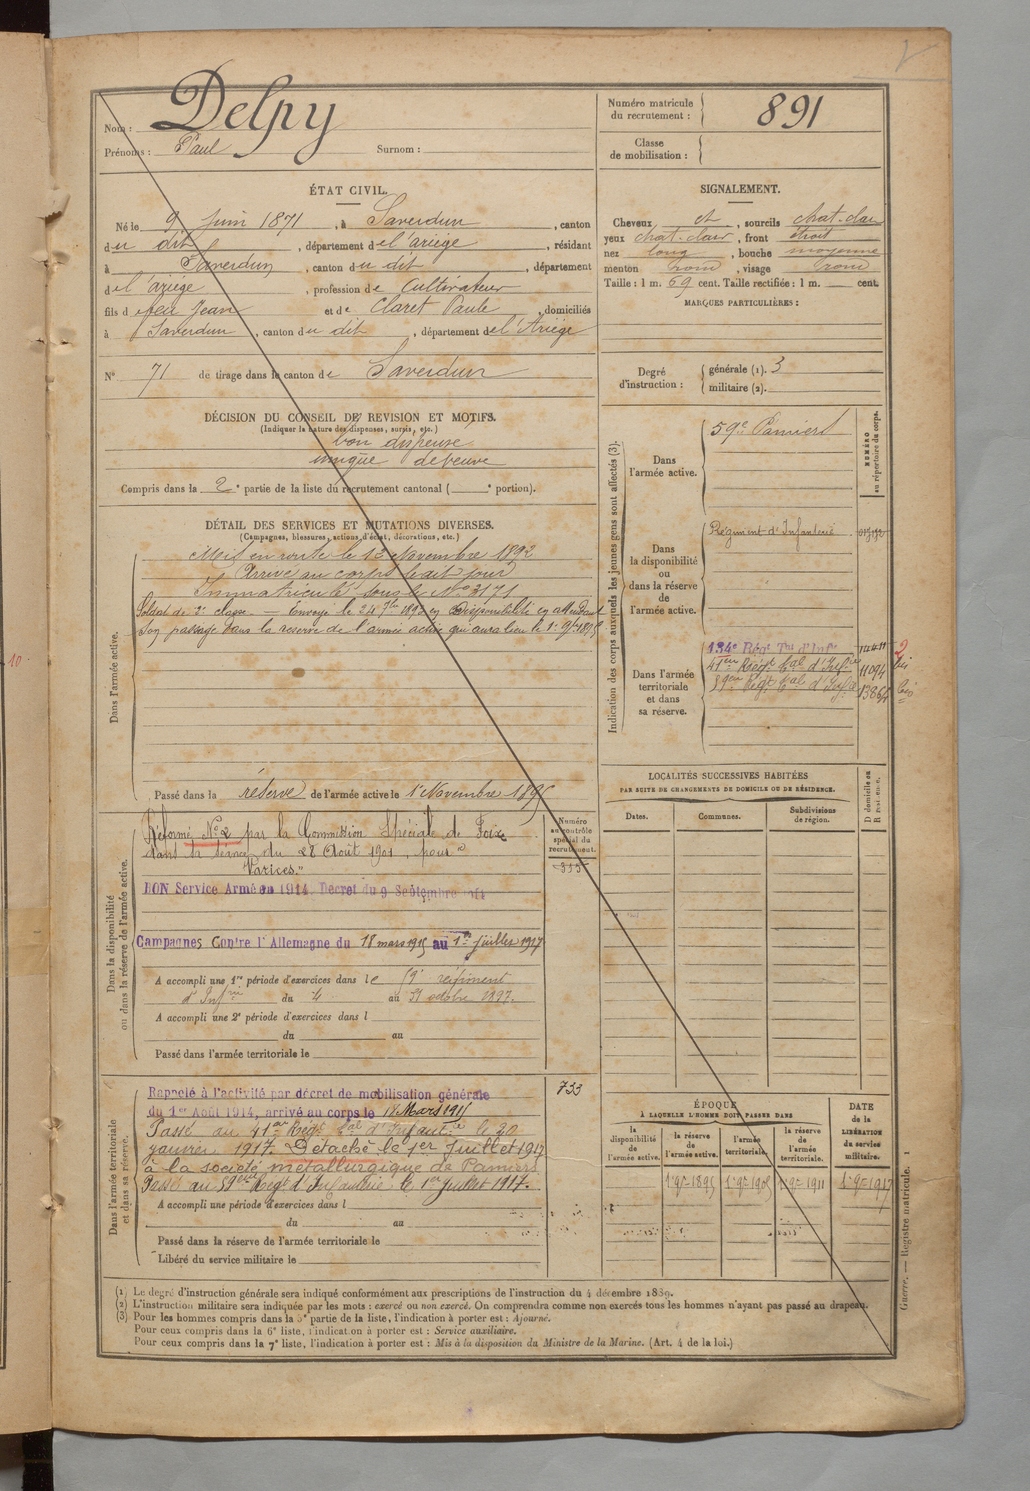 Nom : Delpy
Prénoms : Paul Surnom :
Numéro matricule du recrutement : 891
Classe de mobilisation :
ÉTAT CIVIL.
Né le 9 Juin 1871, à Saverdun, canton
du dit, département de l'ariège, résidant
à Saverdun, canton du dit, département
de l'ariège, profession de Cultivateur
fils de feu Jean et de Claret Paule, domiciliés
à Saverdun, canton du dit, département de l'Ariège
N° 71 de tirage dans le canton de Saverdun
SIGNALEMENT.
Cheveux et, sourcils chat-clair
yeux chat-clair, front étroit
nez long, bouche moyenne
menton rond, visage rond
Taille : 1 m. 69 cent. Taille rectifiée : 1 m. cent.
MARQUES PARTICULIÈRES :
Degré d'instruction : générale (1). 3
militaire (2).
DÉCISION DU CONSEIL DE REVISION ET MOTIFS.
(Indiquer la nature des dispenses, sursis, etc.)
bon dispensé
unique de veuve
Compris dans la 2e partie de la liste du recrutement cantonal ( e portion).
DÉTAIL DES SERVICES ET MUTATIONS DIVERSES.
(Campagnes, blessures, actions d'éclat, décorations, etc.)
Dans l'armée active.
Mis en route le 13 Novembre 1892
Arrivé au corps le dit jour
Immatriculé sous le No 3171
Soldat de 2e classe. — Envoyé le 24 7bre 1893 en disponibilité en attendant
son passage dans la réserve de l'armée active qui aura lieu le 1er 9bre 1895
Passé dans la réserve de l'armée active le 1er Novembre 1895
Indication des corps auxquels les jeunes gens sont affectés (3).
NUMÉRO au répertoire du corps.
Dans l'armée active.
59e Pamiers
Dans la disponibilité ou dans la réserve de l'armée active.
Régiment d'Infanterie
Dans l'armée territoriale et dans sa réserve.
134e Régt Tal d'Infie
41eme Régt Tal d'Infie 11094 bis
59eme Régt Tal d'Infie bis
2
LOCALITÉS SUCCESSIVES HABITÉES
PAR SUITE DE CHANGEMENTS DE DOMICILE OU DE RÉSIDENCE.
Dates. Communes. Subdivisions de région. D domicile ou R résidence.
Dans la disponibilité ou dans la réserve de l'armée active.
Numéro au contrôle spécial du recrutement.
355
Réformé No 2 par la Commission Spéciale de Foix
dans sa séance du 28 Août 1901, pour "
Varices."
BON Service Armé en 1914. Décret du 9 Septembre 1914
Campagnes Contre l'Allemagne du 18 mars 1915 au 1er juillet 1917
A accompli une 1re période d'exercices dans le 59e régiment
d'Infrie du 4 au 31 octobre 1897.
A accompli une 2e période d'exercices dans l
du au
Passé dans l'armée territoriale le
Dans l'armée territoriale et dans sa réserve.
733
Rappelé à l'activité par décret de mobilisation générale
du 1er Août 1914, arrivé au corps le 18 Mars 1915
Passé au 41eme Régt Tal d'Infanterie le 20
janvier 1917. Détaché le 1er Juillet 1917
à la société métallurgique de Pamiers
Passé au 59eme Regt d'Infanterie le 1er Juillet 1917.
A accompli une période d'exercices dans l
du au
Passé dans la réserve de l'armée territoriale le
Libéré du service militaire le
ÉPOQUE
À LAQUELLE L'HOMME DOIT PASSER DANS
la disponibilité de l'armée active. la réserve de l'armée active. l'armée territoriale. la réserve de l'armée territoriale.
DATE de la LIBÉRATION du service militaire.
1er 9bre 1895 1er 9bre 1905 1er 9bre 1911 1er 9bre 1917
Guerre. — Registre matricule. 1
(1) Le degré d'instruction générale sera indiqué conformément aux prescriptions de l'instruction du 4 décembre 1889.
(2) L'instruction militaire sera indiquée par les mots : exercé ou non exercé. On comprendra comme non exercés tous les hommes n'ayant pas passé au drapeau.
(3) Pour les hommes compris dans la 5e partie de la liste, l'indication à porter est : Ajourné.
Pour ceux compris dans la 6e liste, l'indication à porter est : Service auxiliaire.
Pour ceux compris dans la 7e liste, l'indication à porter est : Mis à la disposition du Ministre de la Marine. (Art. 4 de la loi.)